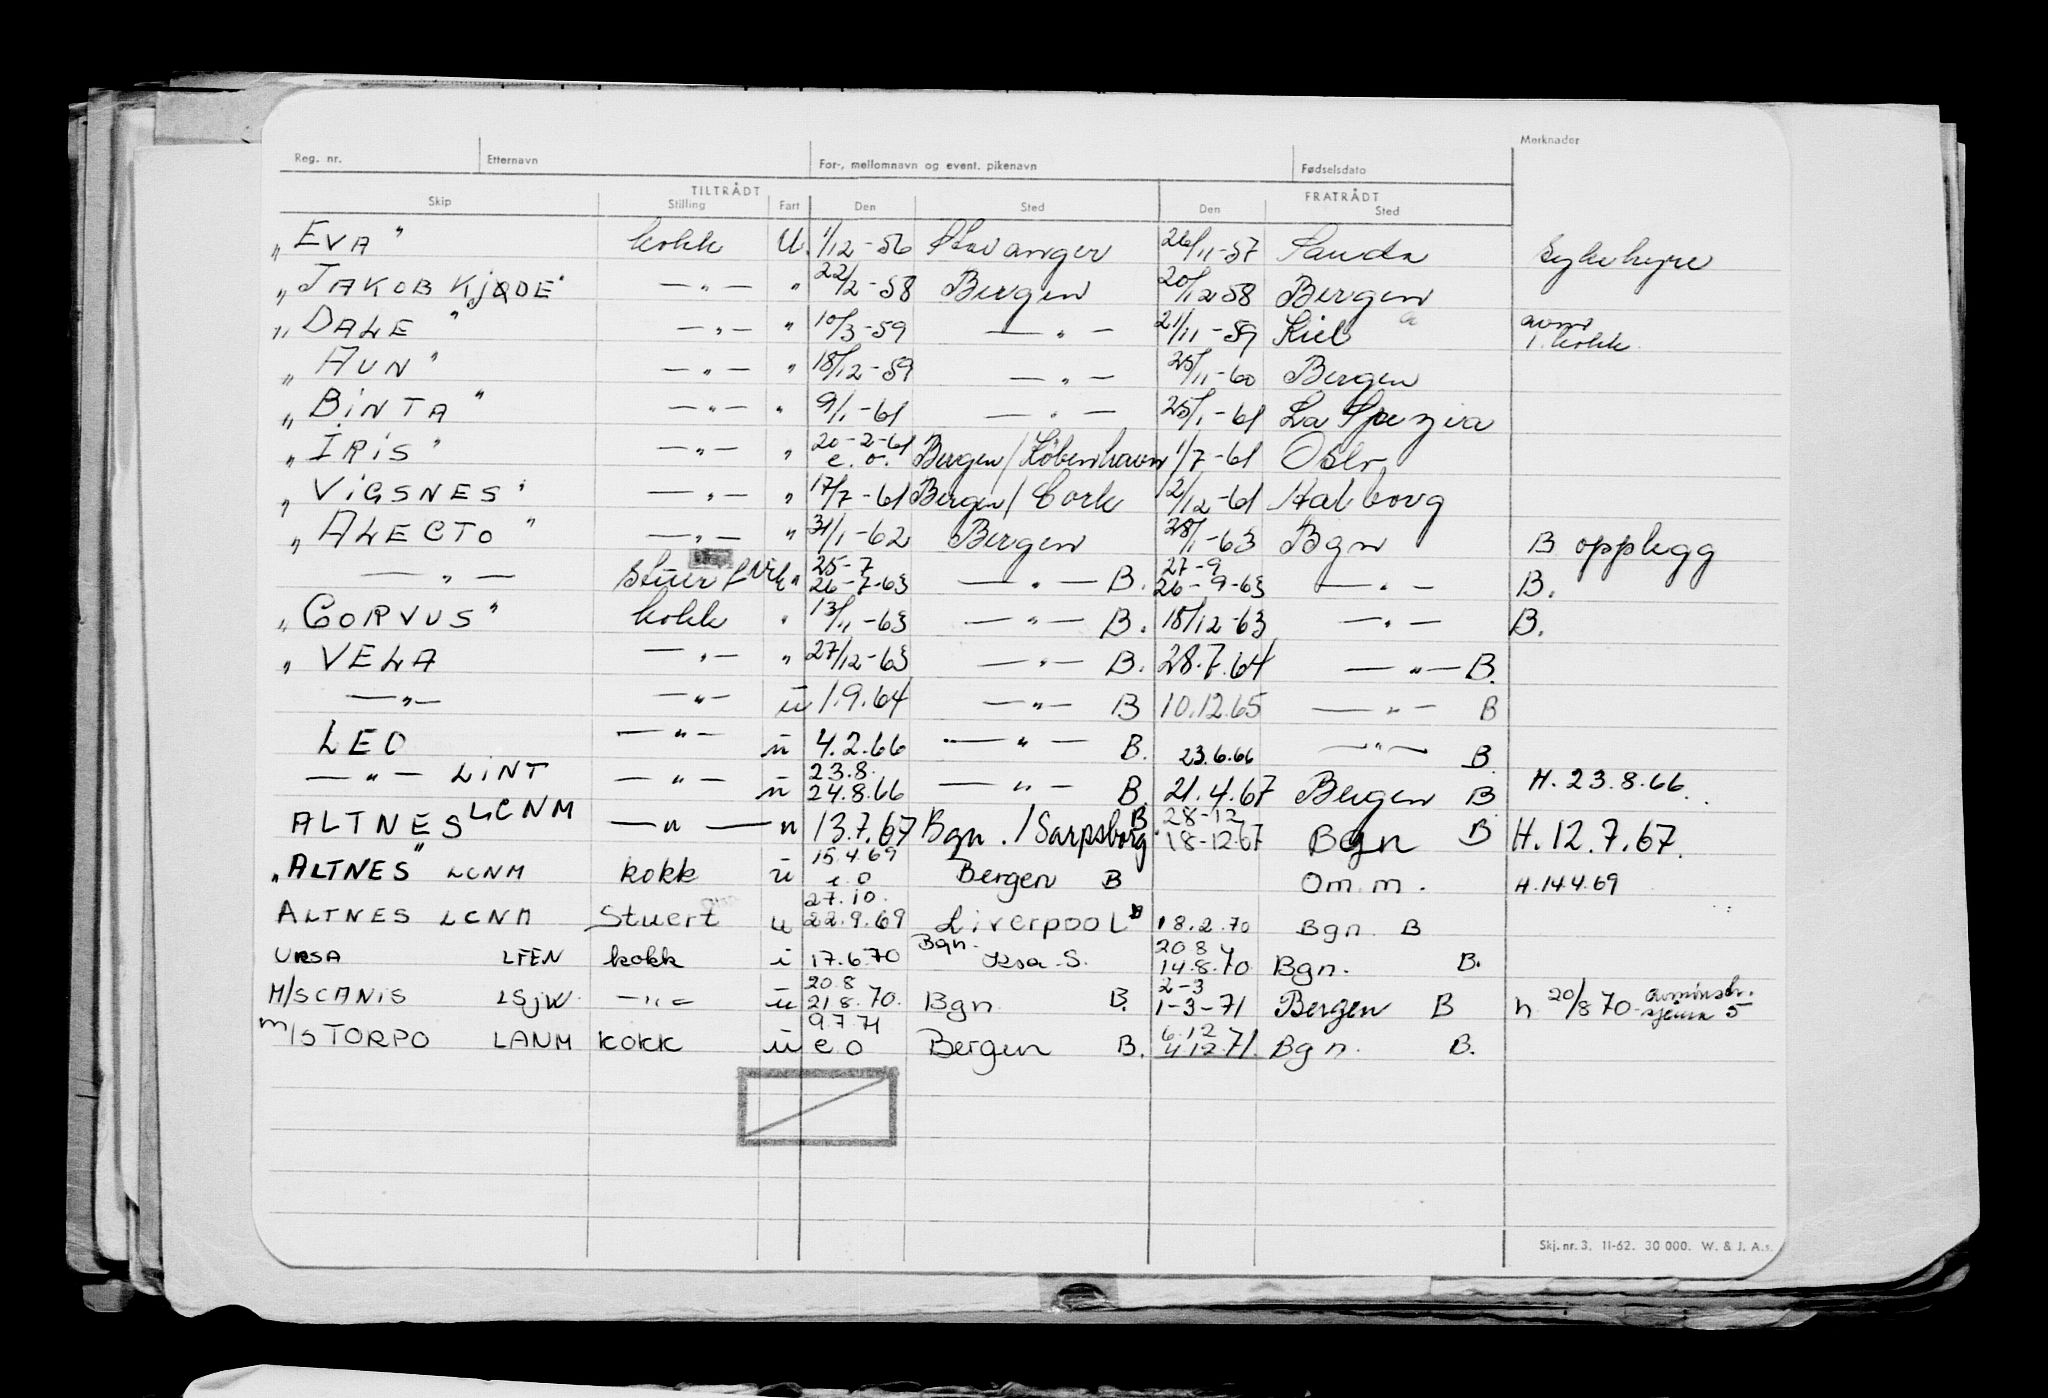 Reg. nr. Etternavn For-, mellomnavn og event. pikenavn Fødselsdato Merknader
TILTRÅDT FRATRÅDT
Skip Stilling Fart Den Sted Den Sted
"EVA" kokk U. 1/12-56 Stavanger 26/11-57 Sauda sykehyre
"JAKOB KJØDE" —"— " 22/2-58 Bergen 20/12 58 Bergen
"DALE" —"— " 10/3-59 —"— 21/11-59 Kiel avm 1. kokk
"AUN" —"— " 18/12-59 —"— 25/11-60 Bergen
"BINTA" —"— " 9/1-61 —"— 25/1-61 La Spezia
"IRIS" —"— " 20-2-61 e.o. Bergen/København 1/7-61 Oslo
"VIGSNES" —"— " 17/7-61 Bergen/Cork 12/12-61 Aalborg
"ALECTO" —"— " 31/1-62 Bergen 28/1-63 Bgn B opplegg
—"— Stuert " 25-7 26-7-63 —"— B. 27-9 26-9-63 —"— B.
"CORVUS" kokk " 13/11-63 —"— B. 18/12-63 —"— B.
"VELA —"— " 27/12-63 —"— B. 28.7.64 —"— B.
—"— —"— u 1.9.64 —"— B 10.12.65 —"— B
LEO —"— u 4.2.66 —"— B. 23.6.66 —"— B
—"— LINT —"— u 23.8. 24.8.66 —"— B. 21.4.67 Bergen B H. 23.8.66.
ALTNES LCNM —"— u 13.7.67 Bgn./Sarpsborg B 28-12 18-12-67 Bgn B H. 12.7.67.
"ALTNES" LCNM kokk u 15.4.69 e.o Bergen B Om.m. H. 14.4.69
ALTNES LCNM Stuert u 27.10. 22.9.69 Liverpool B 18.2.70 Bgn. B
URSA LFEN kokk i 17.6.70 Bgn. Ksa.S. 20.8 14.8.70 Bgn. B.
M/S CANIS LSJW —"— u 20.8 21.8.70. Bgn. B. 2-3 1-3-71 Bergen B h. 20/8 70 5
m/s TORPO LANM kokk u 9.7.71 e o Bergen B. 6.12 4.12.71. Bgn. B.
Skj. nr. 3. 11-62. 30 000. W. & J. A.s.